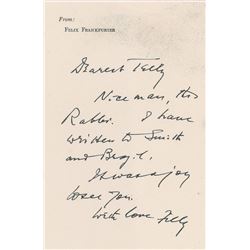 From:
FELIX FRANKFURTER
Dearest
Nice man, this
Rabbi. I have
written to Smith
and
It was a joy
to see you.
With love